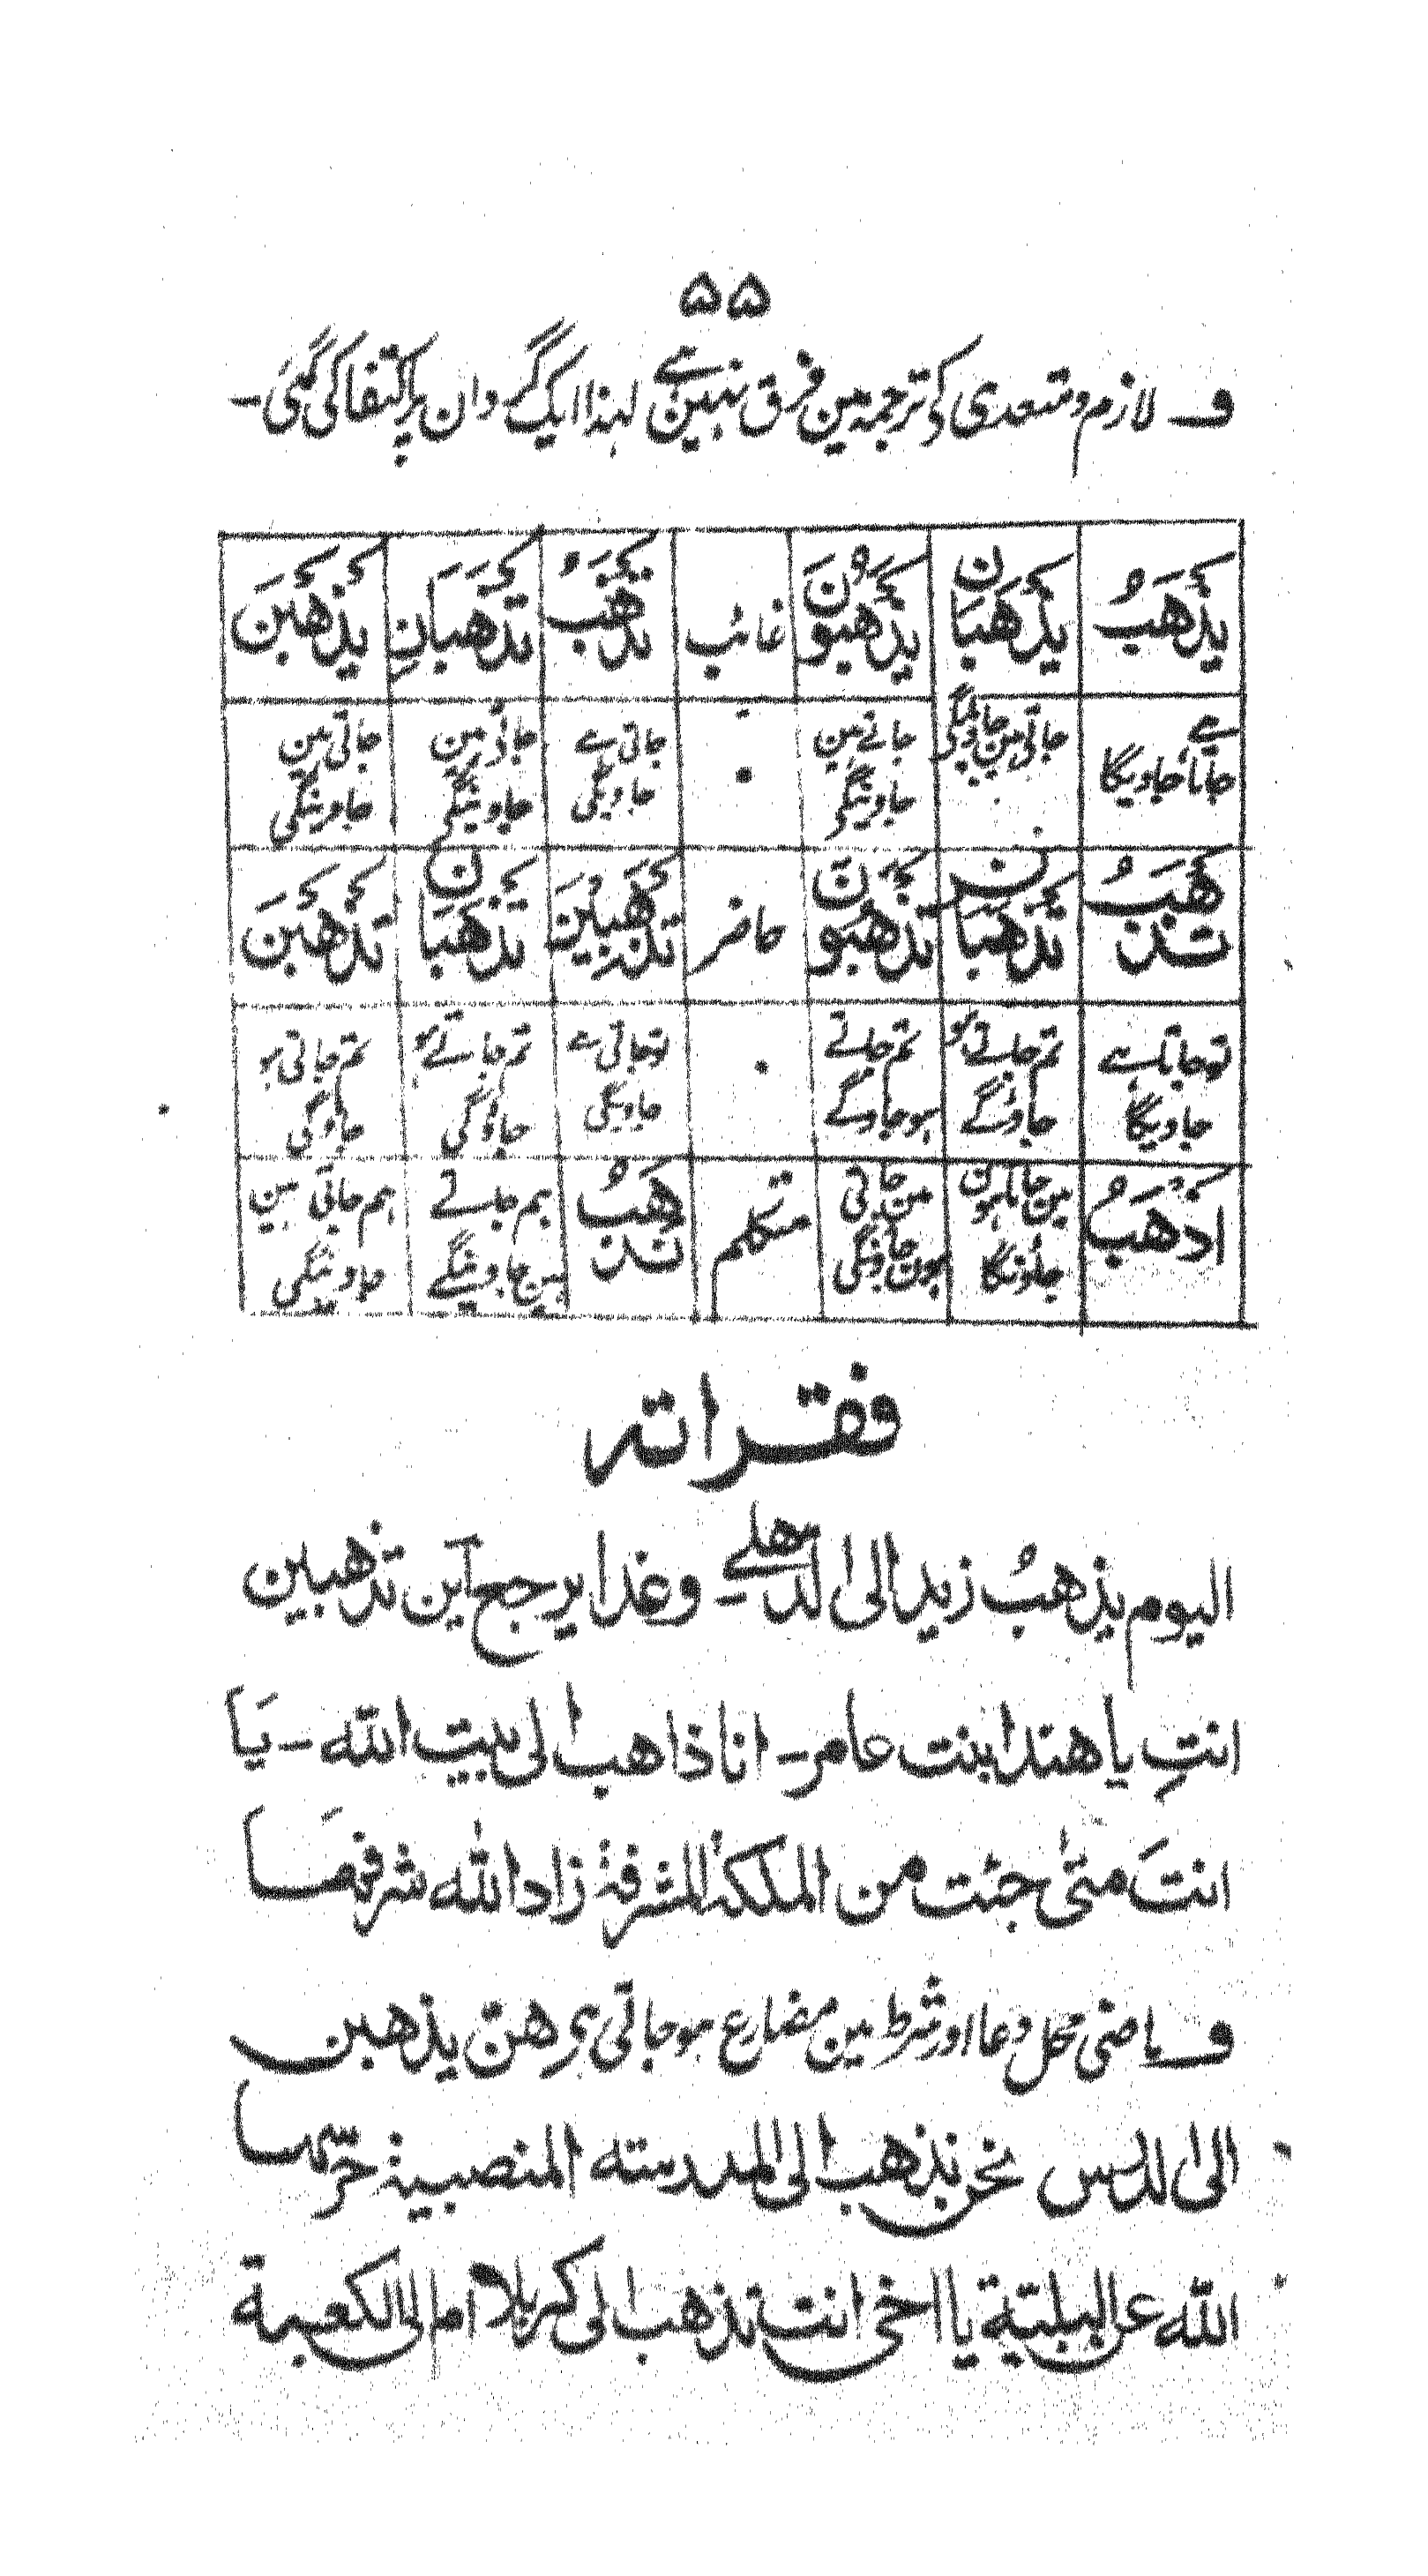 ۵۵
ف لازم و متعدی کے ترجمہ مین فرق نہین ہے لہذا ایک گردان پر اکتفا کی گئی۔
يَذْهَبُ يَذْهَبَانِ يَذْهَبُوْنَ غائب تَذْهَبُ تَذْهَبَانِ يَذْهَبْنَ
جاتا ہے جاویگا جاتے ہین جاوینگے جاتے ہین جاوینگے ۰ جاتی ہے جاویگی جاتی ہین جاوینگی جاتی ہین جاوینگی
تَذْهَبُ تَذْهَبَانِ تَذْهَبُوْنَ حاضر تَذْهَبِيْنَ تَذْهَبَانِ تَذْهَبْنَ
تو جاتا ہے جاویگا تم جاتے ہو جاؤگے تم جاتے ہو جاؤگے ۰ تو جاتی ہے جاویگی تم جاتے ہو جاؤگی تم جاتی ہو جاؤگی
اَذْهَبُ مین جاتا ہون جاؤنگا مین جاتی ہون جاؤنگی متکلم نَذْهَبُ ہم جاتے ہین جاوینگے ہم جاتی ہین جاوینگی
فقراتہ
اليوم يذهبُ زيد الى الدهلے ۔ وغدا يرجع اين تذهبين
انتِ يا هندا بنت عامر۔ انا ذاهب الى بيت الله ۔ يَا
انتَ متىٰ جئت من المكة المشرفة زاد الله شرفَها
ف ماضی محل دعا اور شرط مین مضارع ہو جاتی ہے هن يذهبن
الى الدرس نحن نذهب الى المدرسته المنصبية حرسها
الله عن البلية يا اخى انت تذهب الى كربلا ام الى الكعبة